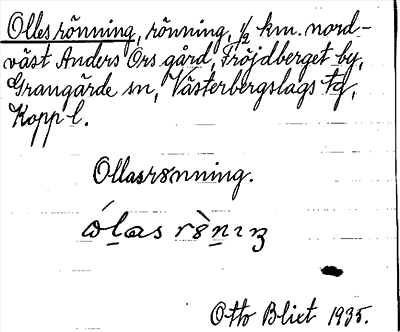 Ollesrönning, rönning, ½ km. nord-
väst Anders Ors gård, Fröjdberget by,
Grangärde sn, Västerbergslags tg,
Kopp l.
Ollasrønning.
Otto Blixt 1935.